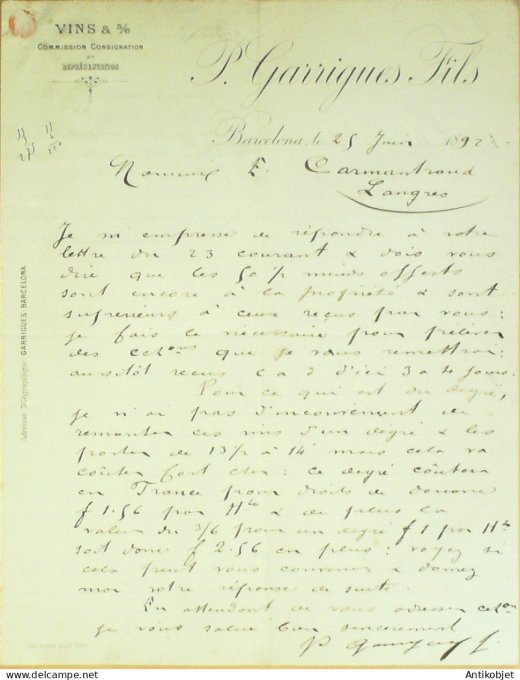 VINS & 3/6
COMMISSION CONSIGNATION
ET
REPRÉSENTATION
P. Garrigues Fils
Barcelona, le 25 Juin 1892
Monsieur E. Carmantrand
Langres
Adresse Télégraphique GARRIGUES-BARCELONA
Je m'empresse de répondre à votre
lettre du 23 courant & dois vous
dire que les 50 1/2 muids offerts
sont encore à la propriété & sont
supérieurs à ceux reçus par vous:
je fais le nécessaire pour prélever
des echons que je vous remettrai
aussitôt reçus c a d d'ici 3 a 4 jours.
Pour ce qui est du degré,
je n'ai pas d'inconvenient de
remonter ces vins d'un degré & les
porter de 13 1/2 à 14 mais cela va
coûter fort cher: ce degré coûtera
en France pour droits de douane
f 1.56 par Hto & de plus la
valeur du 3/6 pour un degré f 1 par Hto
soit donc f 2.56 en plus: voyez si
cela peut vous convenir & donnez
moi votre réponse de suite.
En attendant de vous adresser echon
je vous salue bien sincerement
P Garrigues f.
delcampe.net
Antikobjet